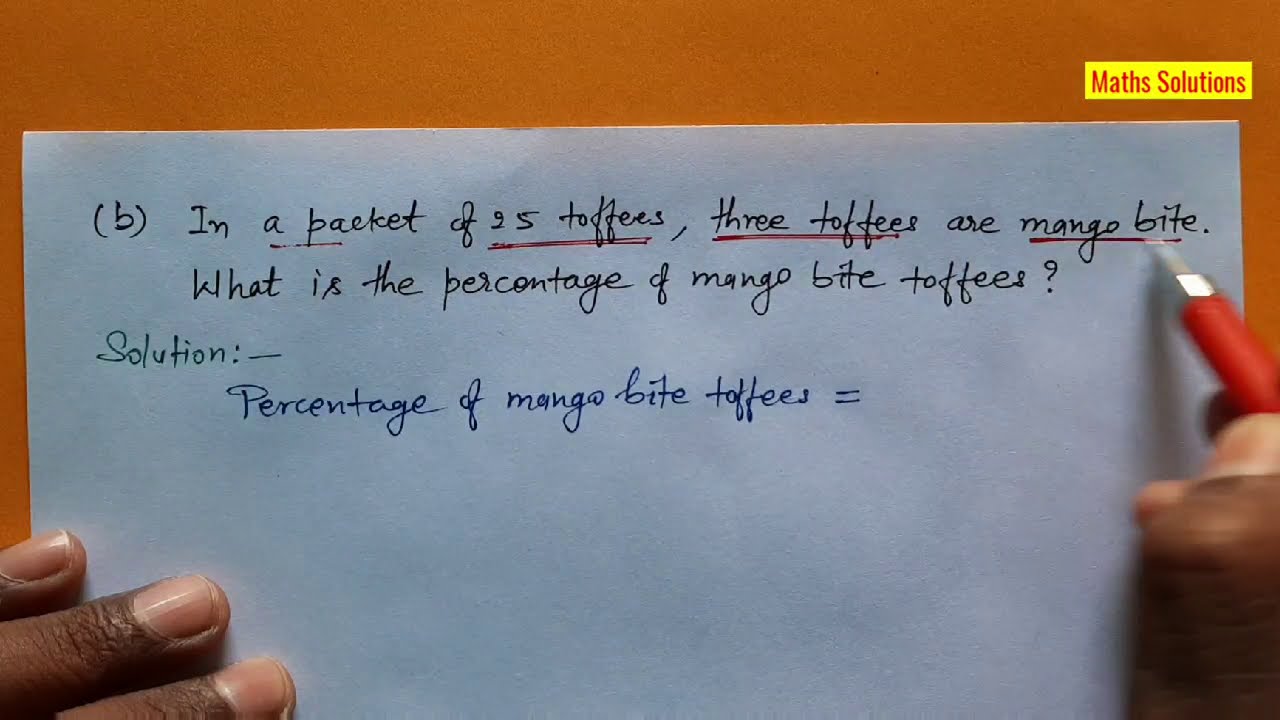 Maths Solutions
(b) In a packet of 25 toffees, three toffees are mango bite.
What is the percentage of mango bite toffees?
Solution:—
Percentage of mango bite toffees =